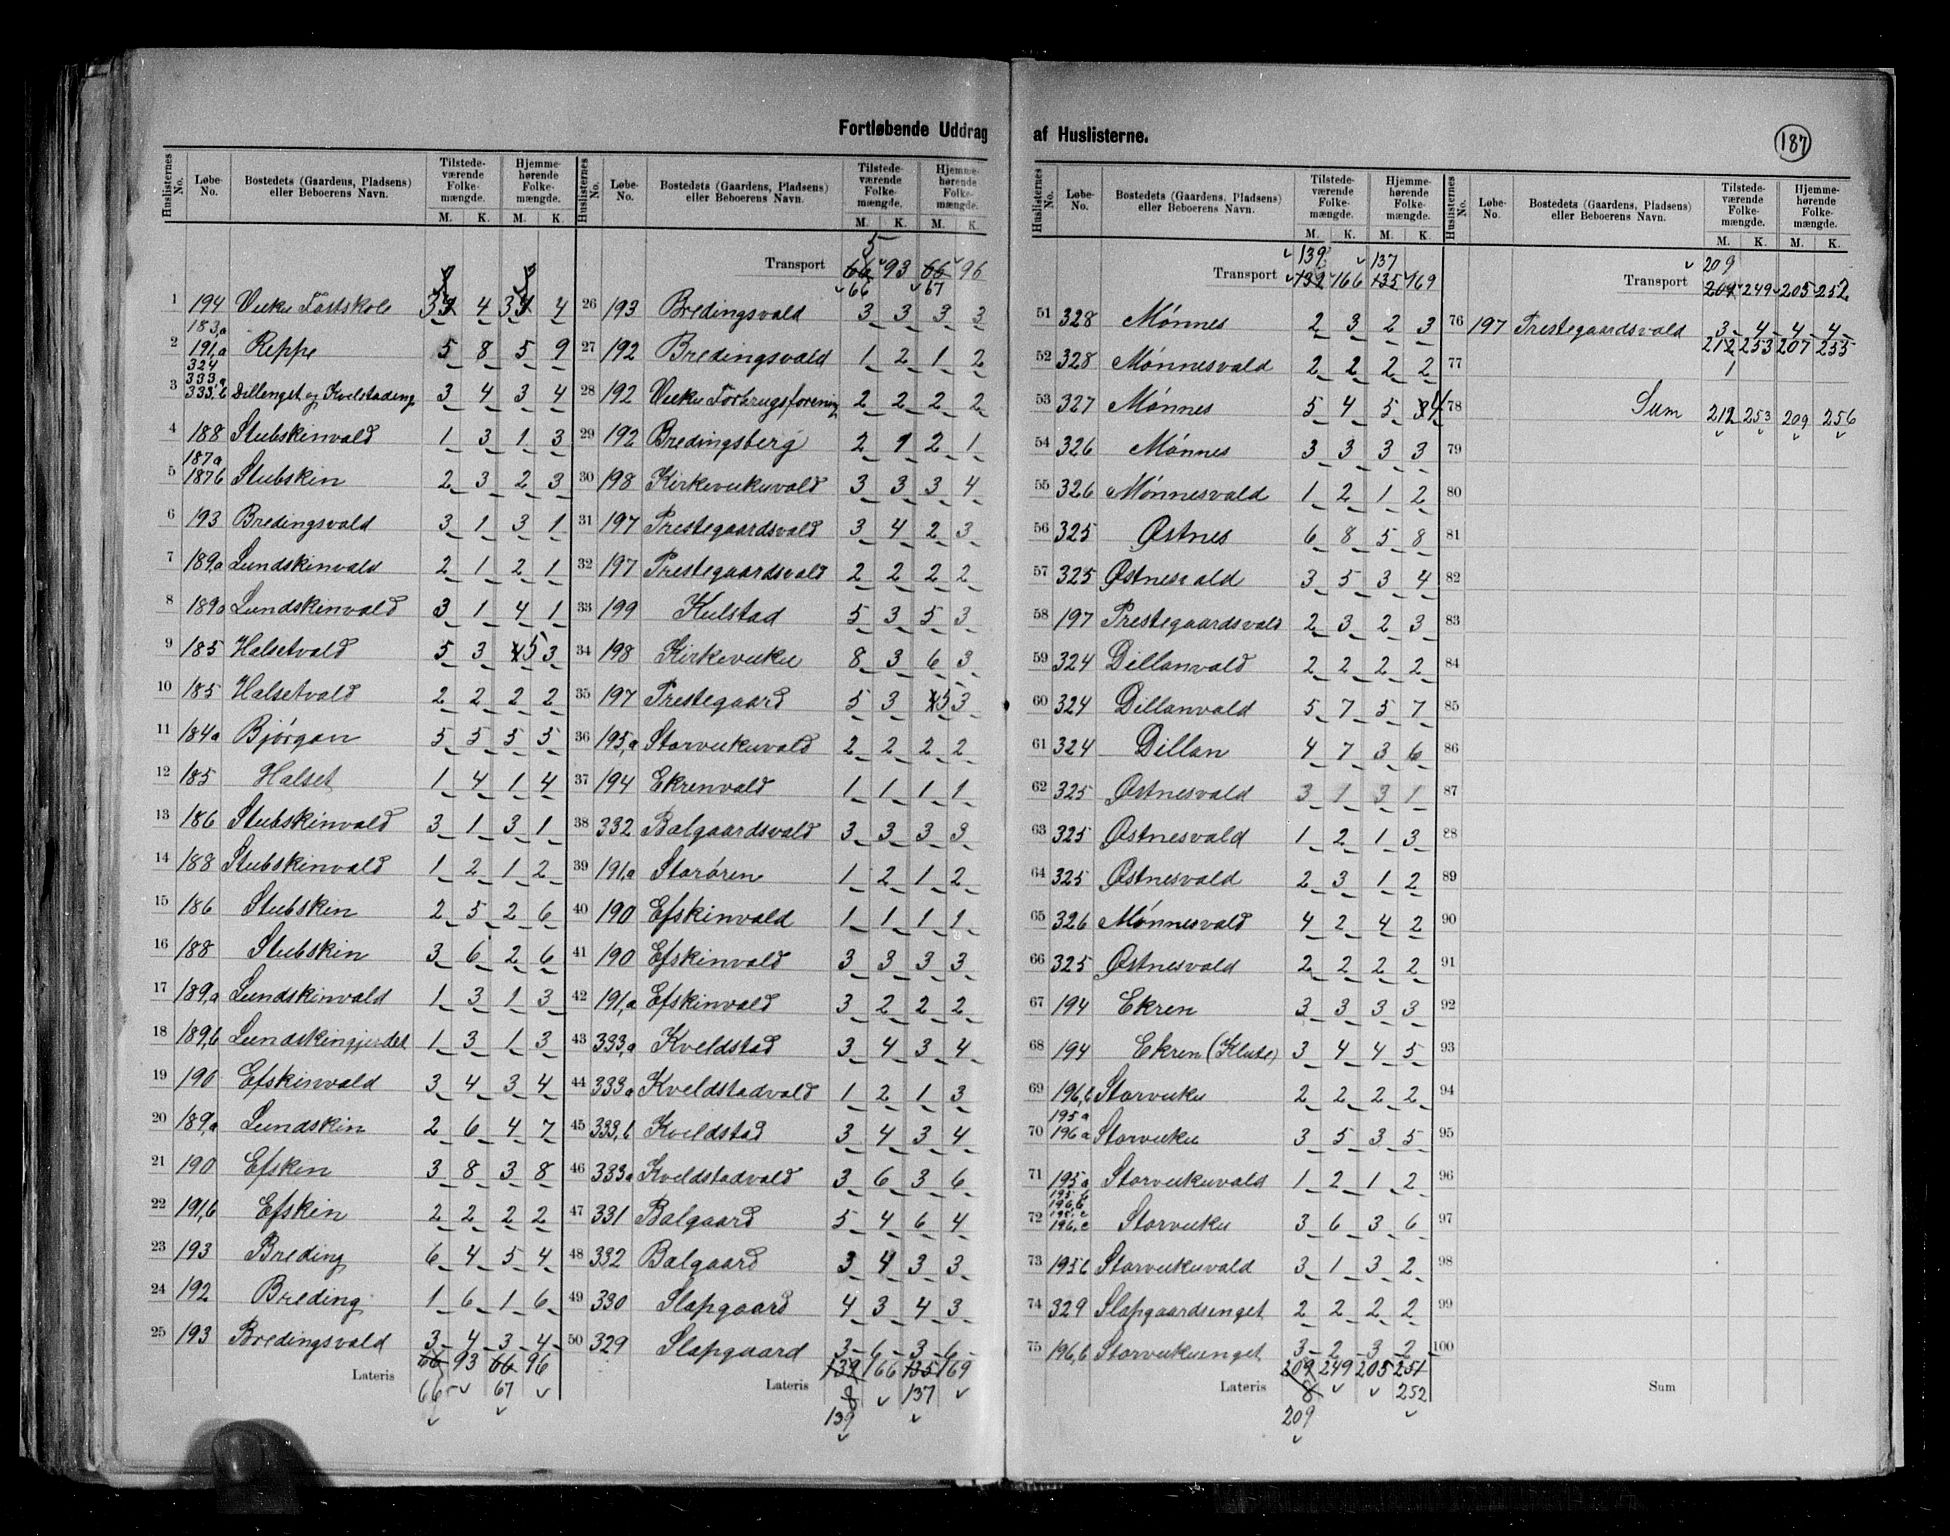 Fortløbende Uddrag af Huslisterne.
187
Huslisternes No. Løbe-No. Bostedets (Gaardens, Pladsens) eller Beboerens Navn. Tilstedeværende Folkemængde. M. K. Hjemmehørende Folkemængde. M. K.
1 194 Vuku Fastskole 3 4 3 4
2 183,a 191,a Reppe 5 8 5 9
3 324 333,a 333,b Dillenget og Kvelstadeng 3 4 3 4
4 188 Stubskinvald 1 3 1 3
5 187a 187b Stubskin 2 3 2 3
6 193 Bredingsvald 3 1 3 1
7 189a Lundskinvald 2 1 2 1
8 189a Lundskinvald 3 1 4 1
9 185 Halsetvald 5 3 4 5 3
10 185 Halsetvald 2 2 2 2
11 184a Bjørgan 5 5 5 5
12 185 Halset 1 4 1 4
13 186 Stubskinvald 3 1 3 1
14 188 Stubskinvald 1 2 1 2
15 186 Stubskin 2 5 2 6
16 188 Stubskin 3 6 2 6
17 189,a Lundskinvald 1 3 1 3
18 189,b Lundskingjerdet 1 3 1 3
19 190 Efskinvald 3 4 3 4
20 189,a Lundskin 2 6 4 7
21 190 Efskin 3 8 3 8
22 191,b Efskin 2 2 2 2
23 193 Breding 6 4 5 4
24 192 Breding 1 6 1 6
25 193 Bredingsvald 3 4 3 4
Lateris 66 93 66 96
665 67
Huslisternes No. Løbe-No. Bostedets (Gaardens, Pladsens) eller Beboerens Navn. Tilstedeværende Folkemængde. M. K. Hjemmehørende Folkemængde. M. K.
5
Transport 66 93 66 96
66 67
26 193 Bredingsvald 3 3 3 3
27 192 Bredingsvald 1 2 1 2
28 192 Vuku Forbrugsforening 2 2 2 2
29 192 Bredingsberg 2 1 2 1
30 198 Kirkevukuvald 3 3 3 4
31 197 Prestegaardsvald 3 4 2 3
32 197 Prestegaardsvald 2 2 2 2
33 199 Kulstad 5 3 5 3
34 198 Kirkevuku 8 3 6 3
35 197 Prestegaard 5 3 4 5 3
36 195,a Storvukuvald 2 2 2 2
37 194 Ekrenvald 1 1 1 1
38 332 Balgaardsvald 3 3 3 3
39 191,a Storøren 1 2 1 2
40 190 Efskinvald 1 1 1 1
41 190 Efskinvald 3 3 3 3
42 191,a Efskinvald 3 2 2 2
43 333,a Kveldstad 3 4 3 4
44 333,a Kveldstadvald 1 2 1 3
45 333,b Kveldstad 3 4 3 4
46 333,a Kveldstadvald 3 6 3 6
47 331 Balgaard 5 4 6 4
48 332 Balgaard 3 4 3 3
49 330 Slapgaard 4 3 4 3
50 329 Slapgaard 3 6 3 6
Lateris 139 166 135 169
8 137
139
Huslisternes No. Løbe-No. Bostedets (Gaardens, Pladsens) eller Beboerens Navn. Tilstedeværende Folkemængde. M. K. Hjemmehørende Folkemængde. M. K.
139 137
Transport 132 166 135 169
51 328 Mønnes 2 3 2 3
52 328 Mønnesvald 2 2 2 2
53 327 Mønnes 5 4 5 3 4
54 326 Mønnes 3 3 3 3
55 326 Mønnesvald 1 2 1 2
56 325 Østnes 6 8 5 8
57 325 Østnesvald 3 5 3 4
58 197 Prestegaardsvald 2 3 2 3
59 324 Dillanvald 2 2 2 2
60 324 Dillanvald 5 7 5 7
61 324 Dillan 4 7 3 6
62 325 Østnesvald 3 1 3 1
63 325 Østnesvald 1 2 1 3
64 325 Østnesvald 2 3 1 2
65 326 Mønnesvald 4 2 4 2
66 325 Østnesvald 2 2 2 2
67 194 Ekren 3 3 3 3
68 194 Ekren (Klute) 3 4 4 5
69 196,b Storvuku 2 2 2 2
70 195a 196a Storvuku 3 5 3 5
71 195a Storvukuvald 1 2 1 2
72 195b 196,b 195,c 196,c Storvuku 3 6 3 6
73 195b Storvukuvald 3 1 3 2
74 329 Slapgaardsenget 2 2 2 2
75 196,b Storvukuenget 3 2 3 2
Lateris 209 249 205 251
8 252
209
Huslisternes No. Løbe-No. Bostedets (Gaardens, Pladsens) eller Beboerens Navn. Tilstedeværende Folkemængde. M. K. Hjemmehørende Folkemængde. M. K.
209
Transport 201 249 205 252
76 197 Prestegaardsvald 3 4 4 4
212 253 207 255
77 1
78 Sum 212 253 209 256
79
80
81
82
83
84
85
86
87
88
89
90
91
92
93
94
95
96
97
98
99
100
Sum